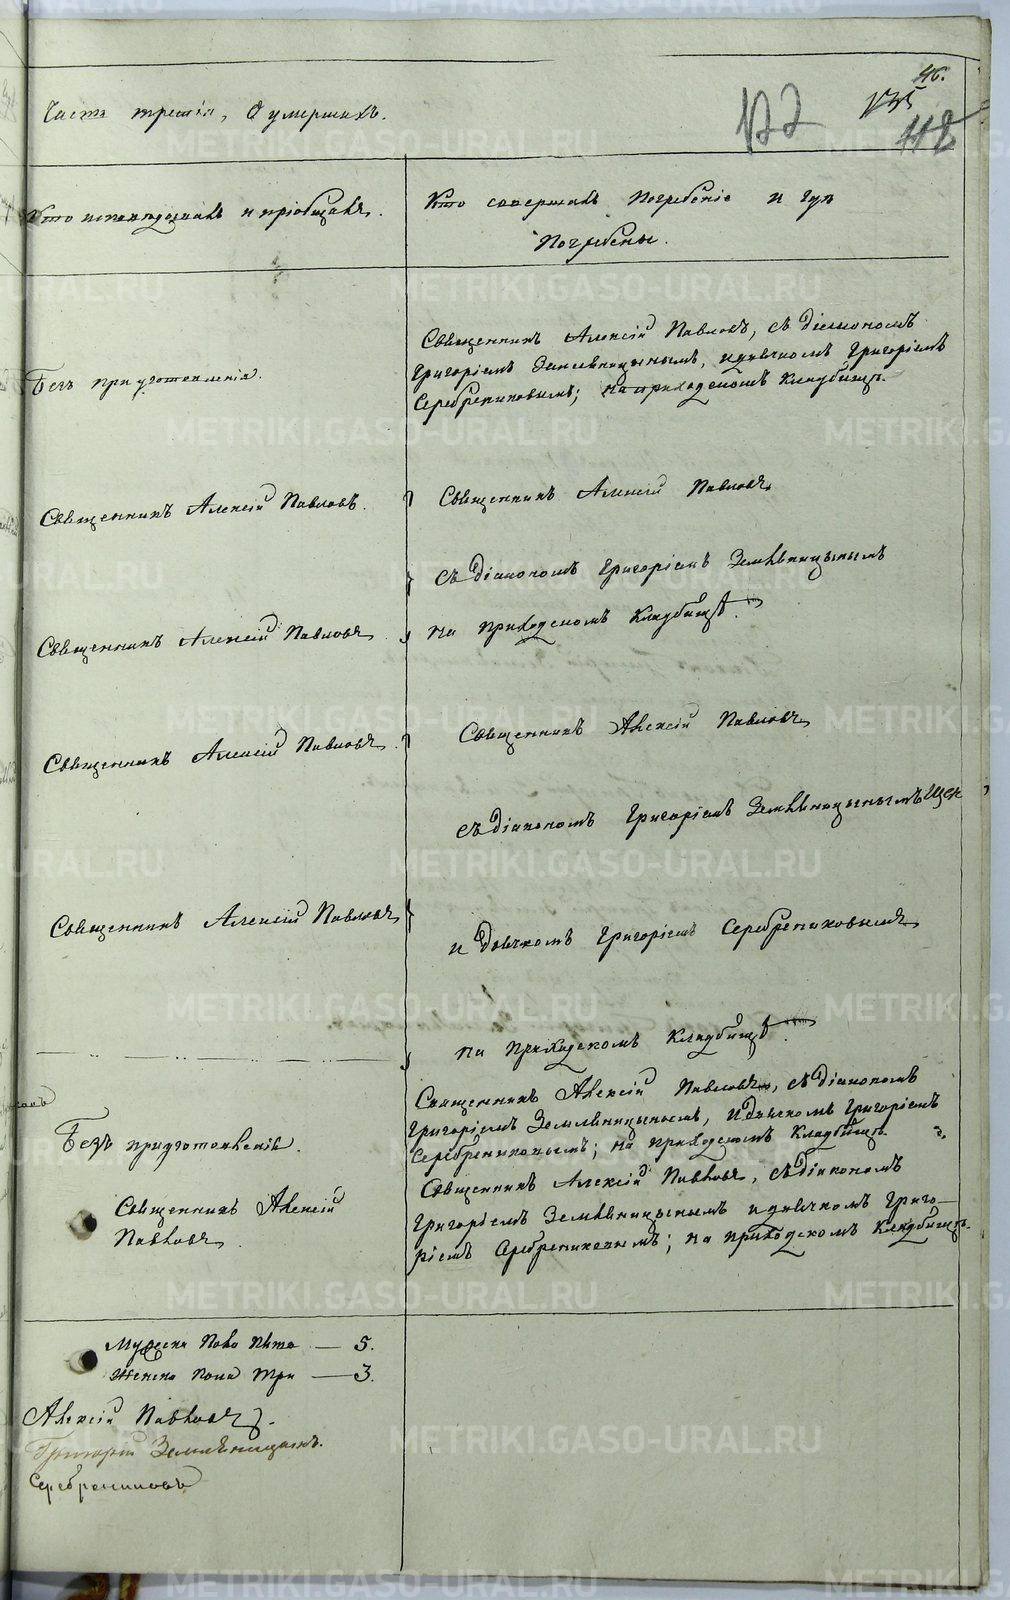 46.
135
122
112
Часть третія, О умершихъ.
Кто исповѣдывалъ и пріобщалъ.
Кто совершалъ Погребеніе и гдѣ
Погребены.
Безъ приуготовленія.
Священникъ Алексій Павловъ, съ діакономъ
Григоріемъ Земляницынымъ, и дьячкомъ Григоріемъ
Серебрениковымъ; на приходскомъ кладбищѣ.
Священникъ Алексій Павловъ.
Священникъ Алексій Павловъ
съ діакономъ Григоріемъ Земляницынымъ
Священникъ Алексій Павловъ
на приходскомъ кладбищѣ.
Священникъ Алексій Павловъ
Священникъ Алексій Павловъ
съ діакономъ Григоріемъ Земляницынымъ
Священникъ Алексій Павловъ
и дьячкомъ Григоріемъ Серебрениковымъ
на приходскомъ кладбищѣ.
Безъ приуготовленія.
Священникъ Алексій Павловъ, съ діакономъ
Григоріемъ Земляницынымъ, и дьячкомъ Григоріемъ
Серебрениковымъ; на приходскомъ кладбищѣ.
Священникъ Алексій
Павловъ.
Священникъ Алексій Павловъ, съ діакономъ
Григоріемъ Земляницынымъ и дьячкомъ Григо-
ріемъ Серебрениковымъ; на приходскомъ кладбищѣ.
Мужеска пола пять — 5.
Женска пола три — 3.
Алексій Павловъ.
Григорій Земляницынъ.
Серебрениковъ
METRIKI.GASO-URAL.RU